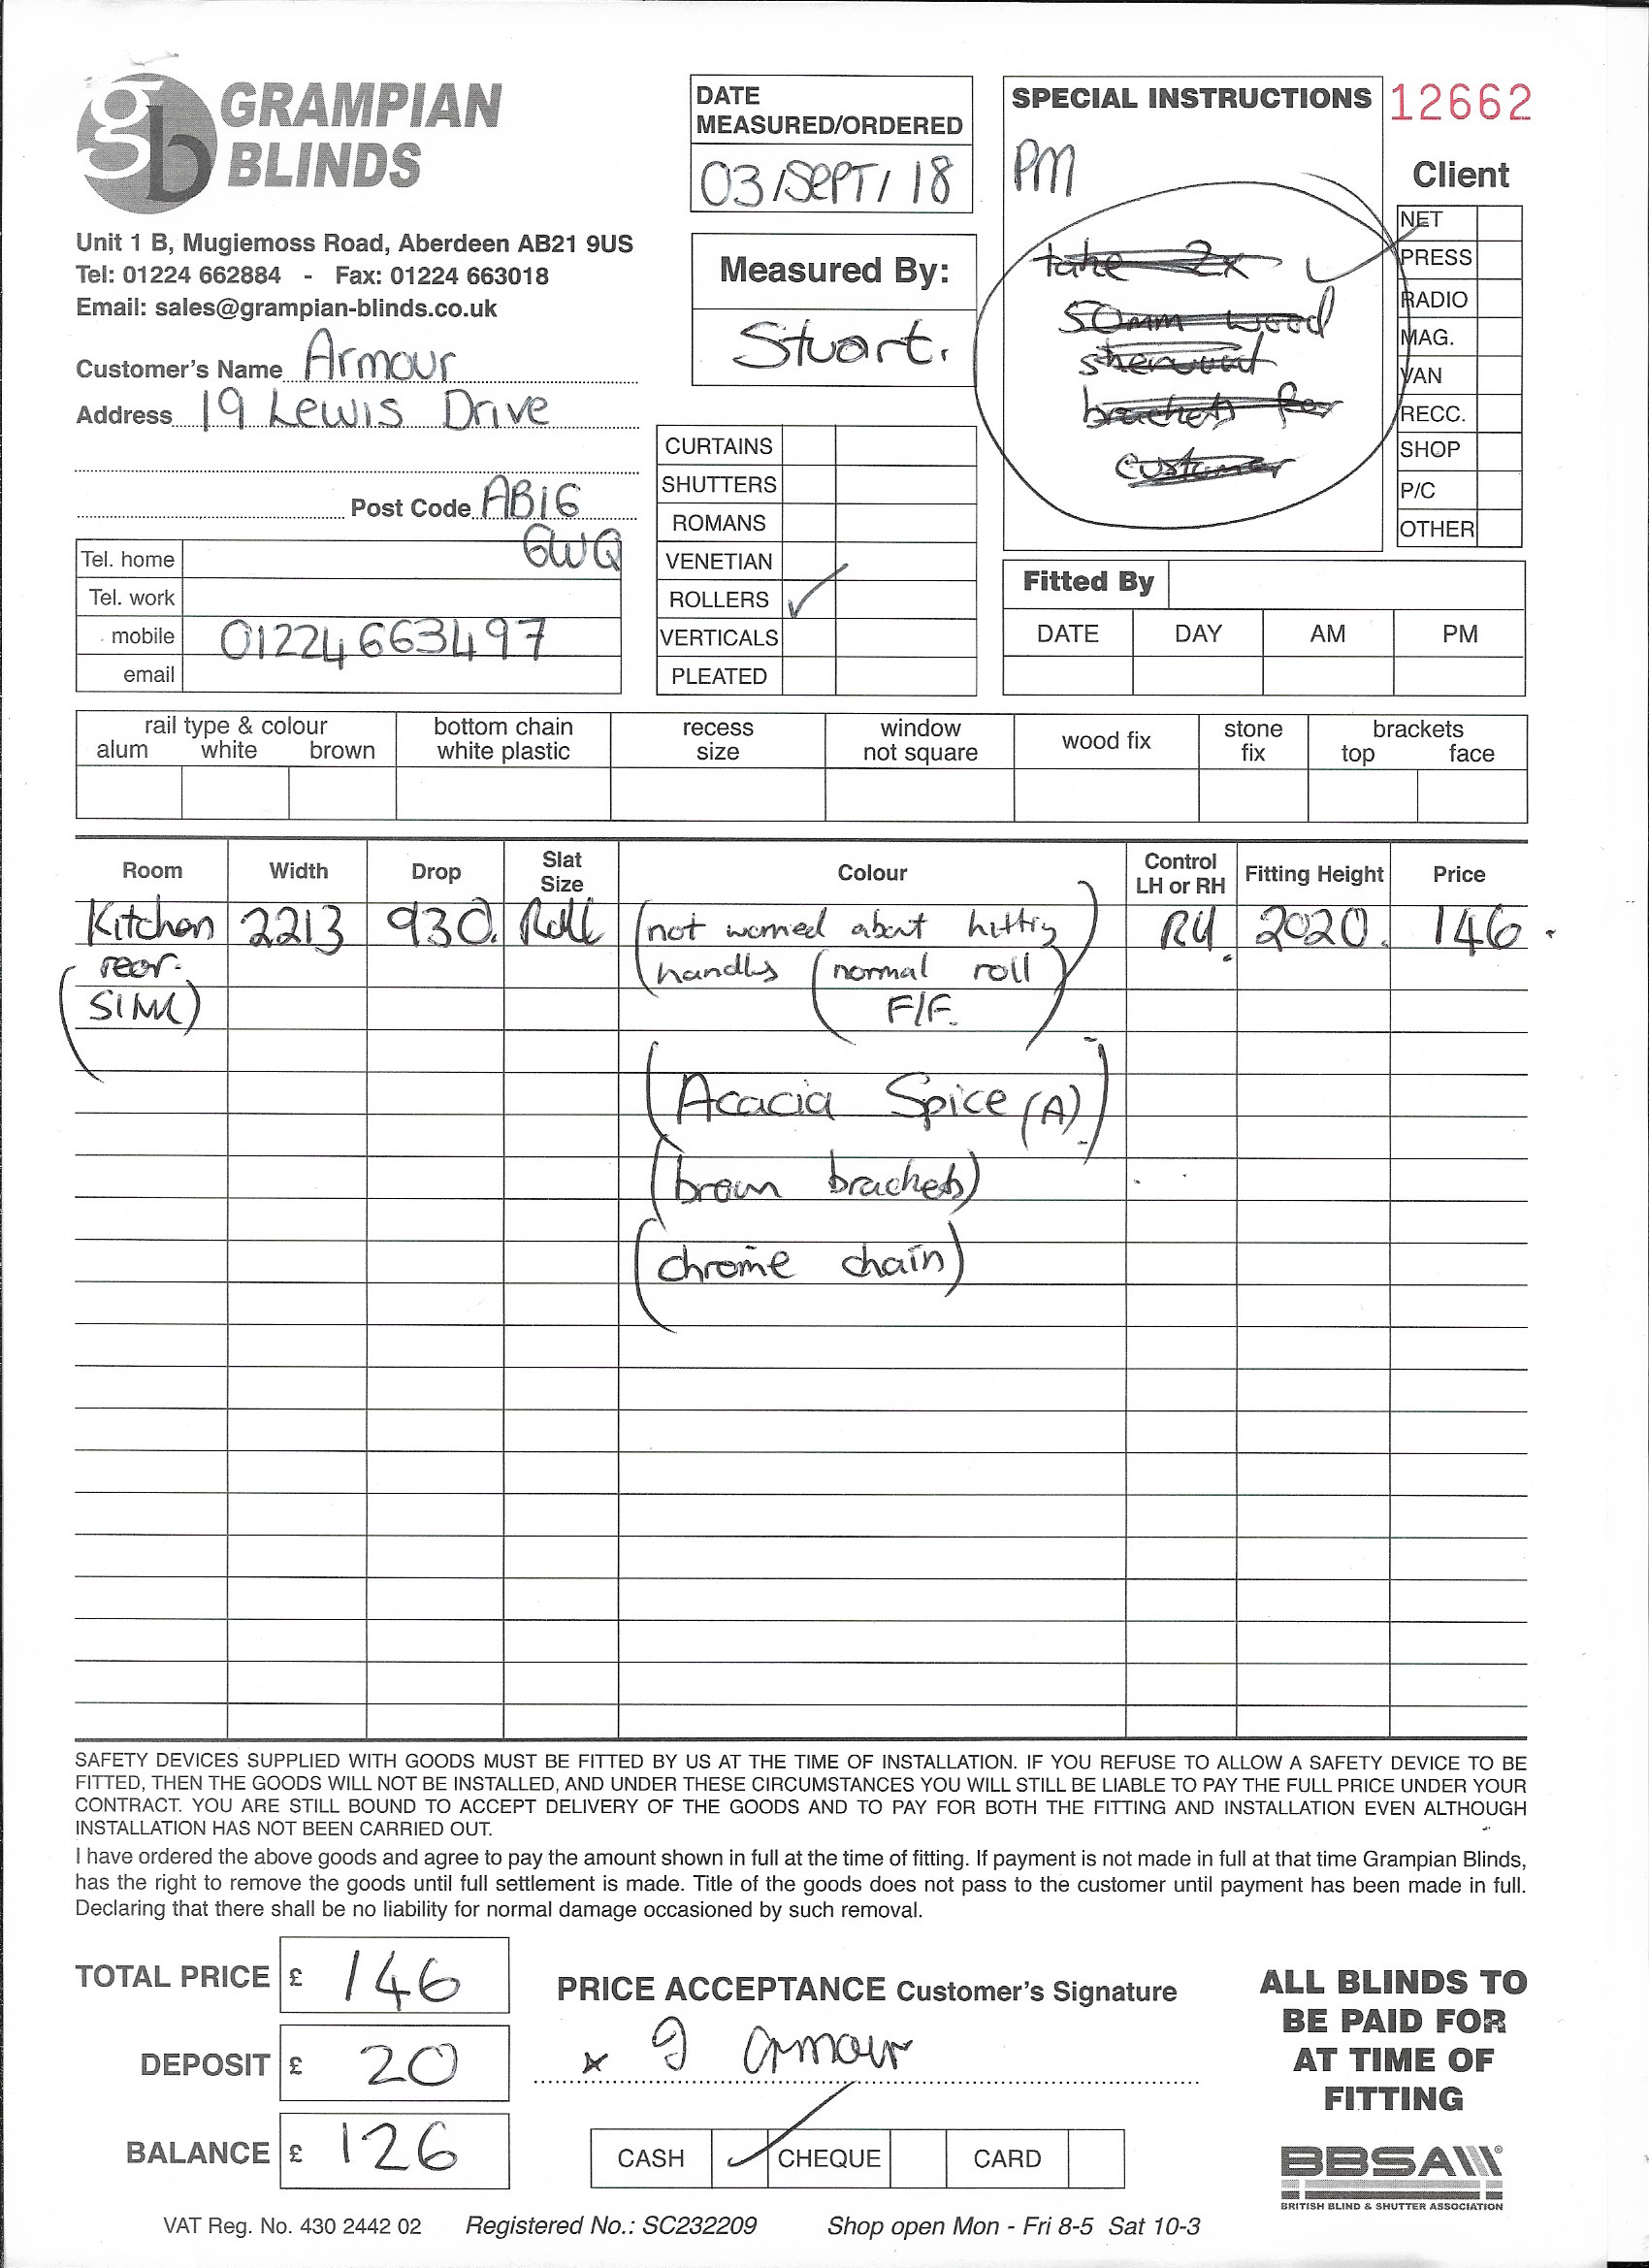 gb GRAMPIAN
BLINDS
Unit 1 B, Mugiemoss Road, Aberdeen AB21 9US
Tel: 01224 662884 - Fax: 01224 663018
Email: sales@grampian-blinds.co.uk
Customer's Name Armour
Address 19 Lewis Drive
Post Code AB16
6WQ
Tel. home
Tel. work
mobile 01224 663497
email
DATE
MEASURED/ORDERED
03/SEPT/18
Measured By:
Stuart.
CURTAINS
SHUTTERS
ROMANS
VENETIAN
ROLLERS ✓
VERTICALS
PLEATED
SPECIAL INSTRUCTIONS
PM
take 2x ✓
50mm wood
sherwood
brackets for
customer
12662
Client
NET
PRESS
RADIO
MAG.
VAN
RECC.
SHOP
P/C
OTHER
Fitted By
DATE DAY AM PM
rail type & colour
alum white brown
bottom chain
white plastic
recess
size
window
not square
wood fix
stone
fix
brackets
top face
Room Width Drop Slat Size Colour Control LH or RH Fitting Height Price
Kitchen 2213 930. Roll (not worried about hitting RH. 2020. 146.
rear. handles) (normal roll
(SINK) F/F.)
(Acacia Spice (A))
(brown brackets)
(chrome chain)
SAFETY DEVICES SUPPLIED WITH GOODS MUST BE FITTED BY US AT THE TIME OF INSTALLATION. IF YOU REFUSE TO ALLOW A SAFETY DEVICE TO BE
FITTED, THEN THE GOODS WILL NOT BE INSTALLED, AND UNDER THESE CIRCUMSTANCES YOU WILL STILL BE LIABLE TO PAY THE FULL PRICE UNDER YOUR
CONTRACT. YOU ARE STILL BOUND TO ACCEPT DELIVERY OF THE GOODS AND TO PAY FOR BOTH THE FITTING AND INSTALLATION EVEN ALTHOUGH
INSTALLATION HAS NOT BEEN CARRIED OUT.
I have ordered the above goods and agree to pay the amount shown in full at the time of fitting. If payment is not made in full at that time Grampian Blinds,
has the right to remove the goods until full settlement is made. Title of the goods does not pass to the customer until payment has been made in full.
Declaring that there shall be no liability for normal damage occasioned by such removal.
TOTAL PRICE £ 146
DEPOSIT £ 20
BALANCE £ 126
PRICE ACCEPTANCE Customer's Signature
x J Armour
CASH ✓ CHEQUE CARD
ALL BLINDS TO
BE PAID FOR
AT TIME OF
FITTING
BBSA
BRITISH BLIND & SHUTTER ASSOCIATION
VAT Reg. No. 430 2442 02 Registered No.: SC232209 Shop open Mon - Fri 8-5 Sat 10-3